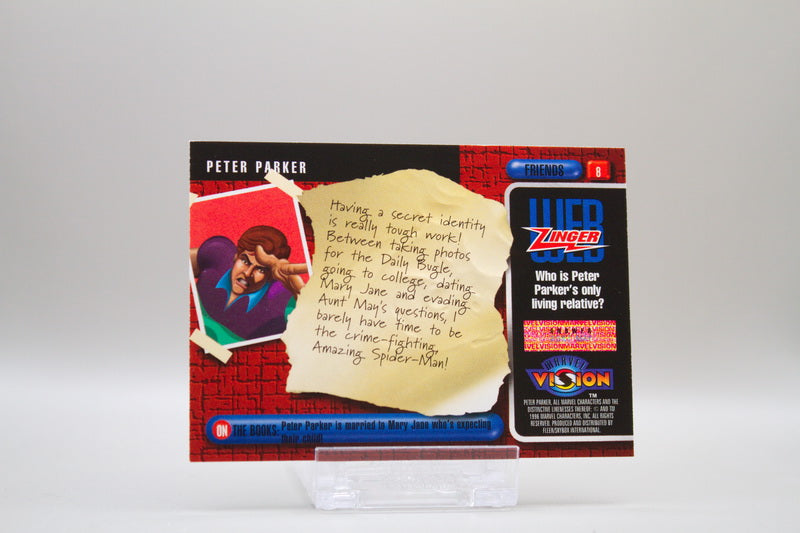 PETER PARKER
FRIENDS
8
Having a secret identity
is really tough work!
Between taking photos
for the Daily Bugle,
going to college, dating
Mary Jane and evading
Aunt May's questions, I
barely have time to be
the crime-fighting,
Amazing Spider-Man!
WEB
ZINGER
Who is Peter
Parker's only
living relative?
VELVISIONMARVELVISION
VELVISIONMARVELVISION
MARVEL
VISION
TM
PETER PARKER, ALL MARVEL CHARACTERS AND THE
DISTINCTIVE LIKENESSES THEREOF: © AND TO
1996 MARVEL CHARACTERS, INC. ALL RIGHTS
RESERVED. PRODUCED AND DISTRIBUTED BY
FLEER/SKYBOX INTERNATIONAL.
ON THE BOOKS: Peter Parker is married to Mary Jane who's expecting
their child!